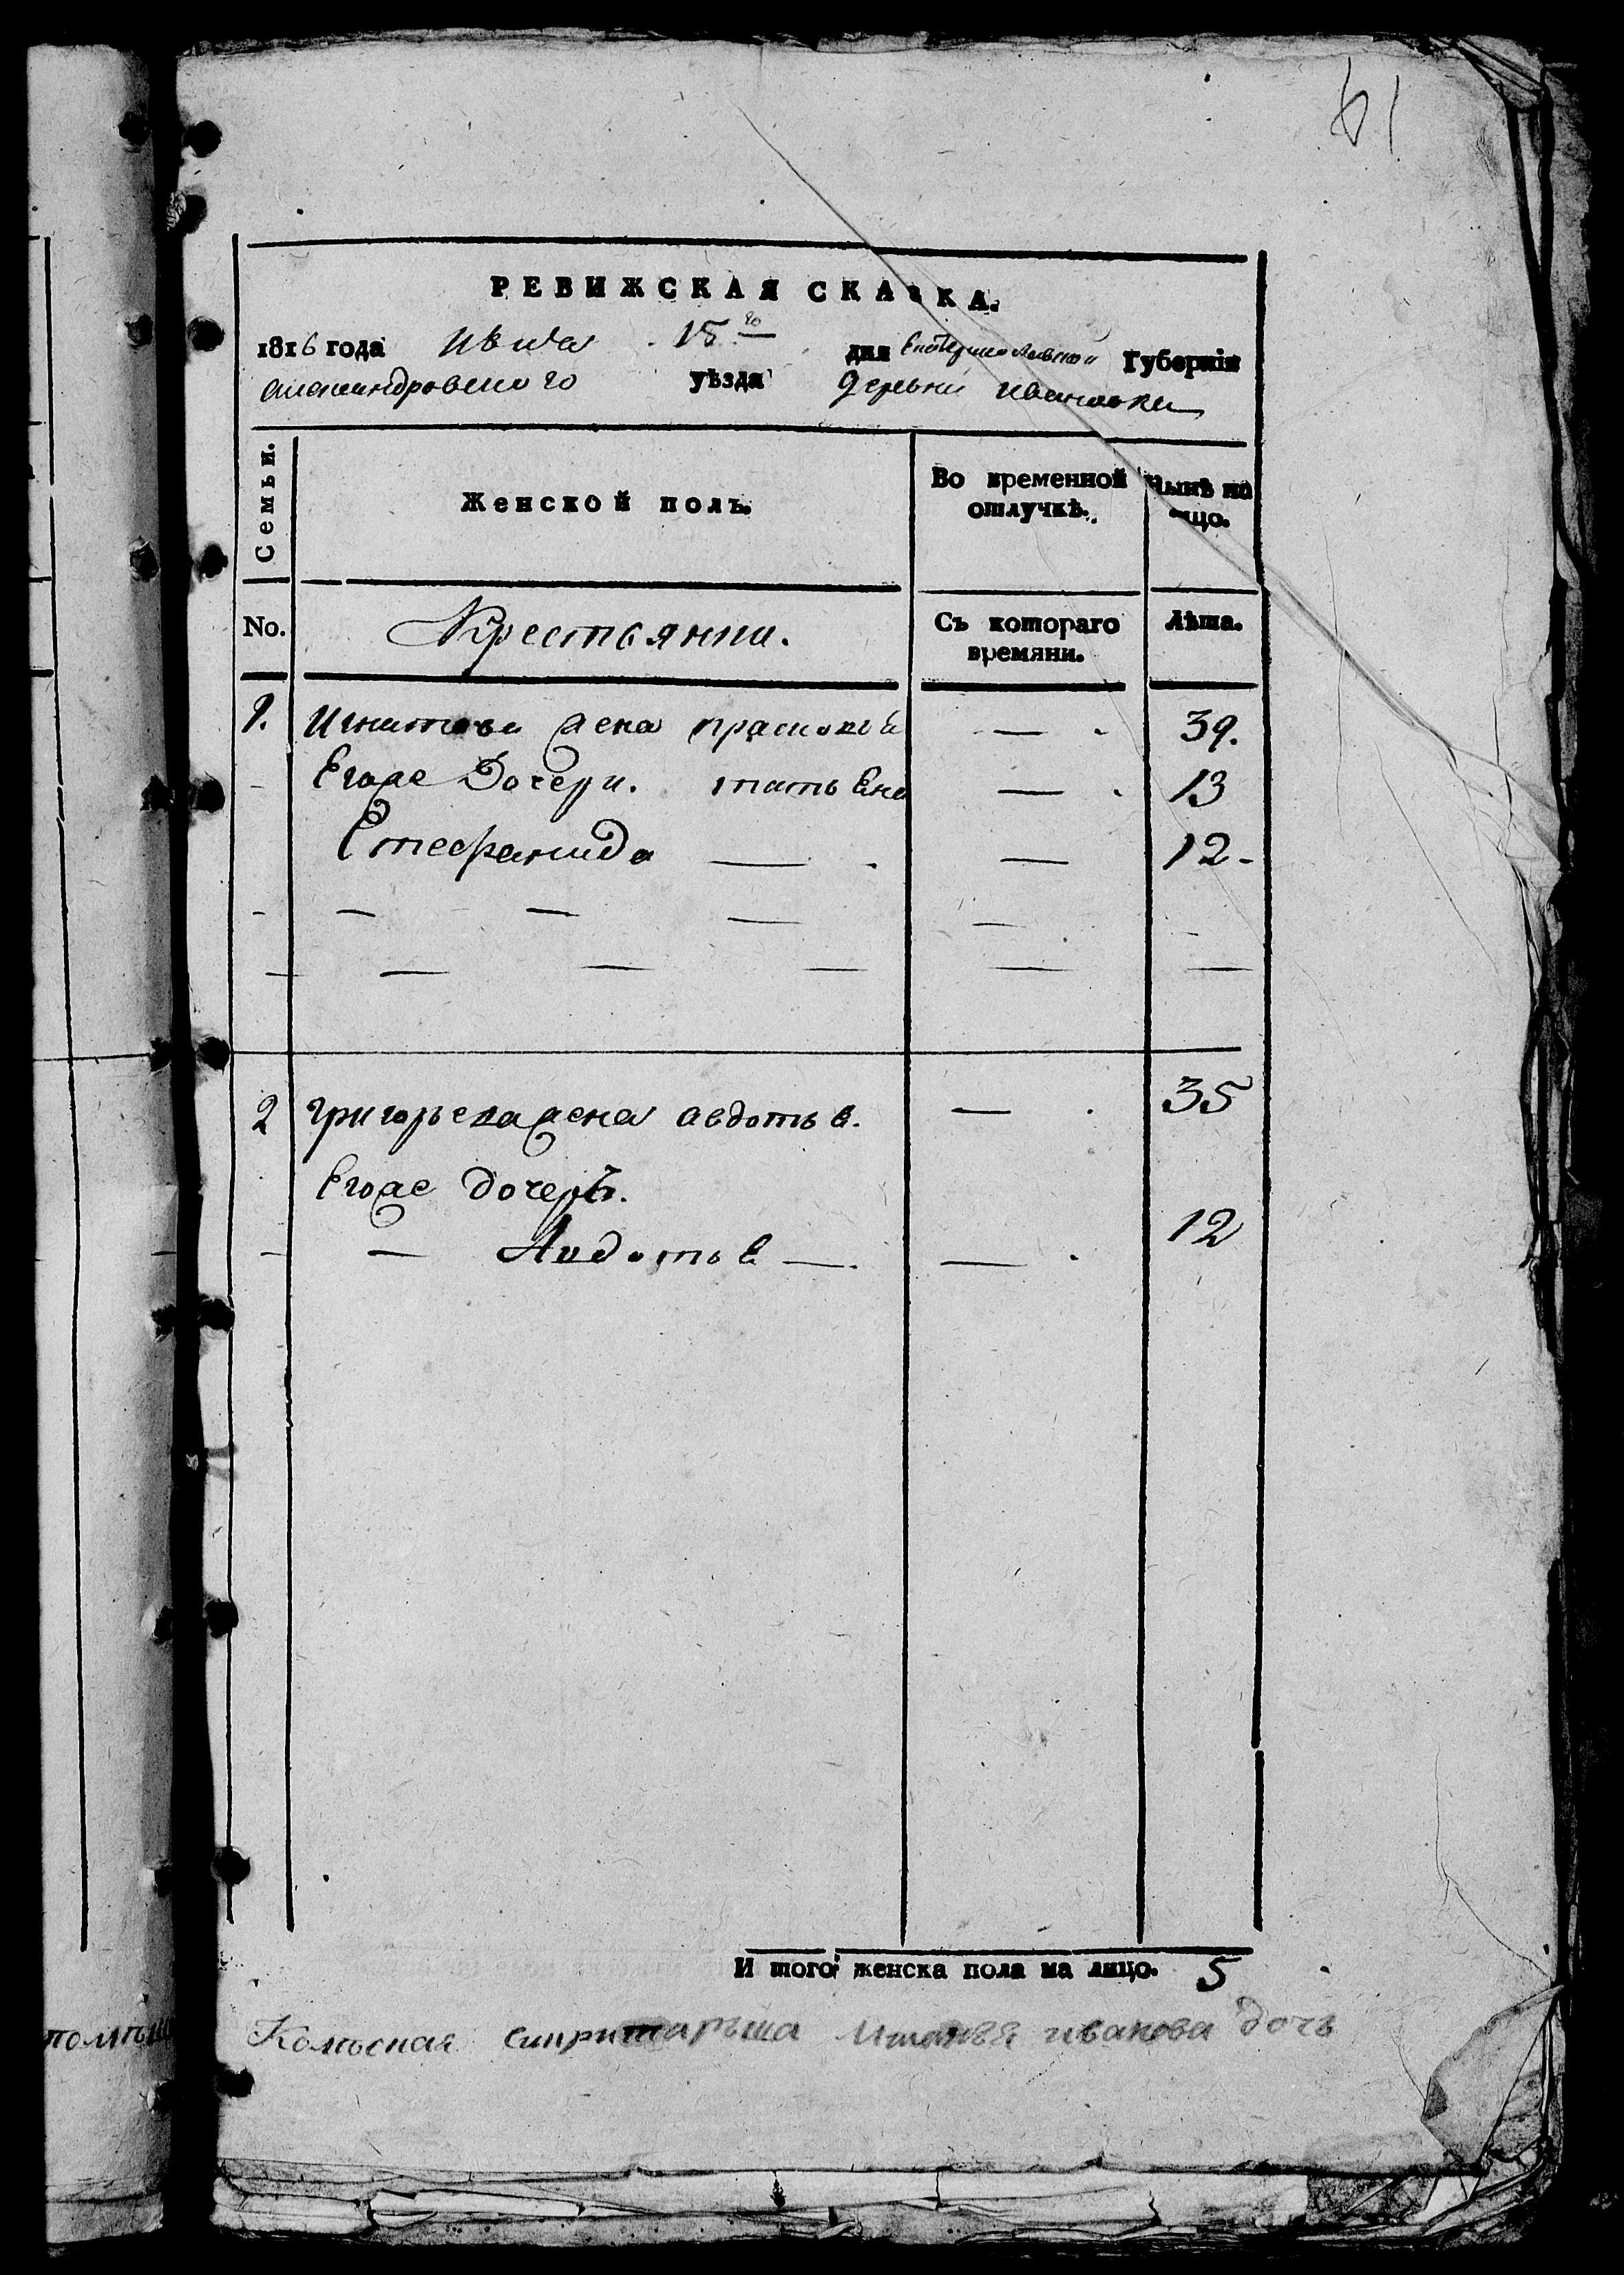 61
РЕВИЖСКАЯ СКАЗКА.
1816 года Июня 15го дня Екатеринославской Губерніи
александровского уѣзда деревни ивановки
Семьи.
Женской полъ.
Во временной отлучкѣ.
Нынѣ на лицо.
No.
Крестьянки.
Съ котораго времяни.
Лѣта.
1. Игнатова жена прасковья — 39.
Егоже Дочери. татьяна — 13
Стефанида — — 12
2 григорьева жена авдотья. — 35
Егоже дочерь.
— Авдотья — — 12
И того женска пола на лицо. 5
помѣщ
иванова дочь